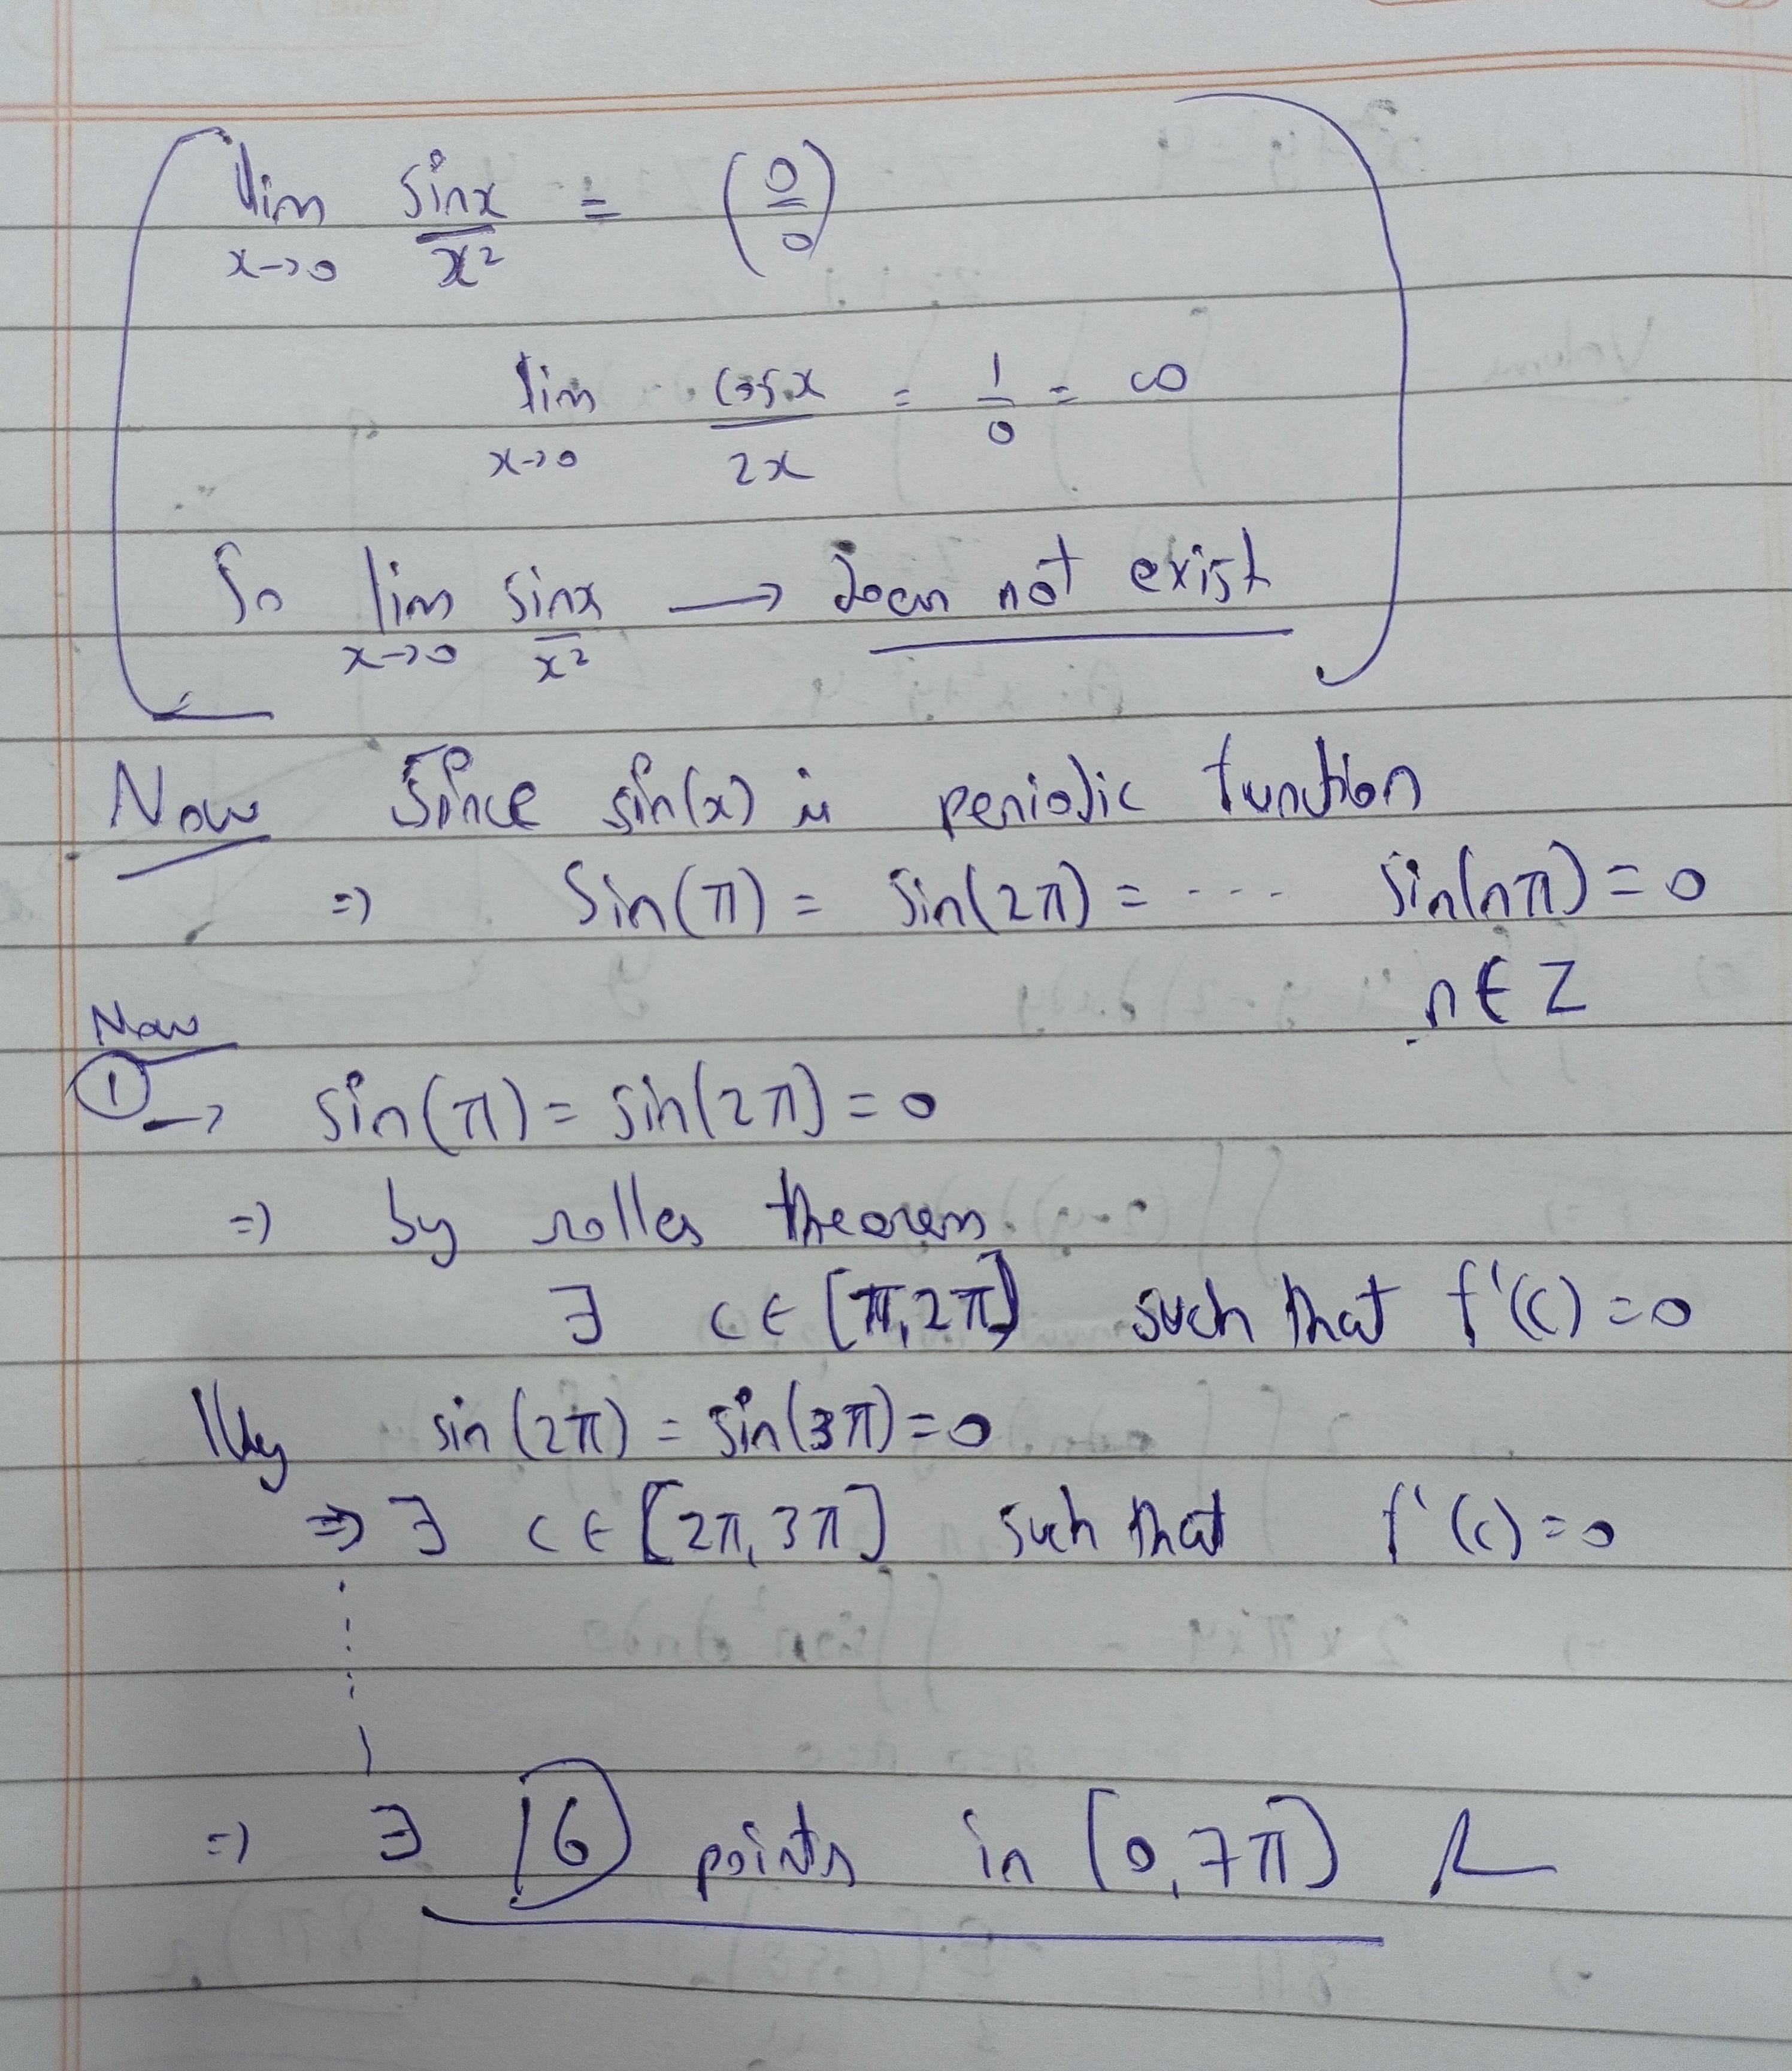 lim sinx/x² = (0/0)
x→0
lim cosx/2x = 1/0 = ∞
x→0
So lim sinx/x² → Does not exist
x→0
Now Since sin(x) is periodic function
⇒ Sin(π) = Sin(2π) = ---- Sin(nπ) = 0
n ∈ Z
Now
① → Sin(π) = Sin(2π) = 0
⇒ by rolles theorem
∃ c ∈ [π, 2π] such that f'(c) = 0
lllly sin(2π) = sin(3π) = 0
⇒ ∃ c ∈ [2π, 3π] such that f'(c) = 0
⇒ ∃ 6 points in (0, 7π)